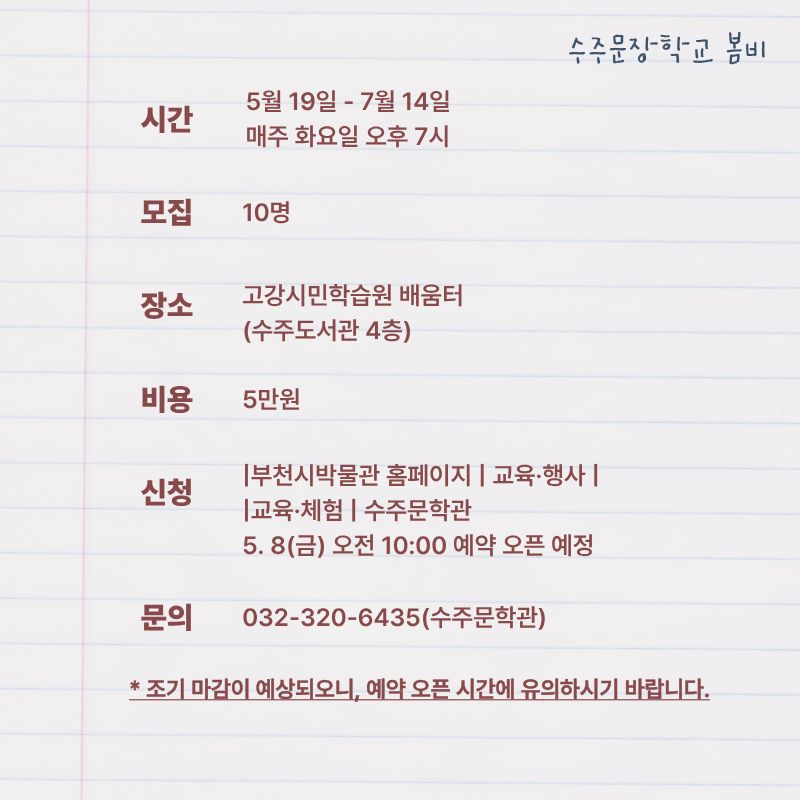 수주문장학교 봄비
시간
5월 19일 - 7월 14일
매주 화요일 오후 7시
모집
10명
장소
고강시민학습원 배움터
(수주도서관 4층)
비용
5만원
신청
|부천시박물관 홈페이지 | 교육·행사 |
|교육·체험 | 수주문학관
5. 8(금) 오전 10:00 예약 오픈 예정
문의
032-320-6435(수주문학관)
* 조기 마감이 예상되오니, 예약 오픈 시간에 유의하시기 바랍니다.